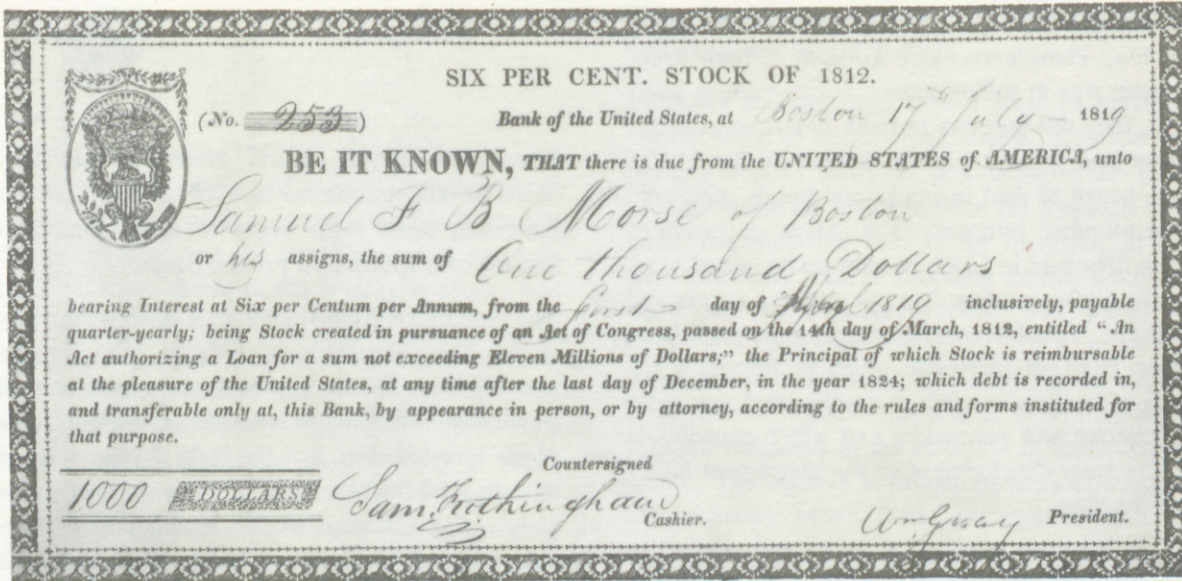 SIX PER CENT. STOCK OF 1812.
(No. 253) Bank of the United States, at Boston 17th July 1819
BE IT KNOWN, THAT there is due from the UNITED STATES of AMERICA, unto
Samuel F B Morse of Boston
or his assigns, the sum of One thousand Dollars
bearing Interest at Six per Centum per Annum, from the first day of 1819 inclusively, payable
quarter-yearly; being Stock created in pursuance of an Act of Congress, passed on the 14th day of March, 1812, entitled “An
Act authorizing a Loan for a sum not exceeding Eleven Millions of Dollars;” the Principal of which Stock is reimbursable
at the pleasure of the United States, at any time after the last day of December, in the year 1824; which debt is recorded in,
and transferable only at, this Bank, by appearance in person, or by attorney, according to the rules and forms instituted for
that purpose.
Countersigned
1000 DOLLARS Sam. Frothingham Cashier. Wm Gray President.